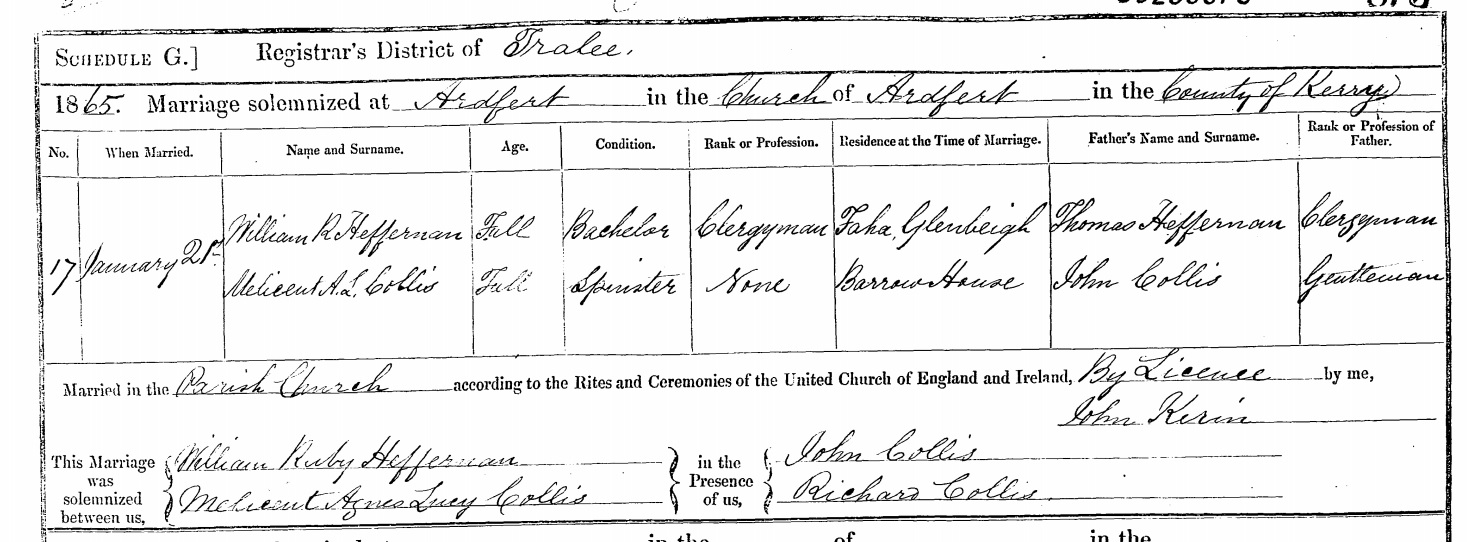 SCHEDULE G.] Registrar's District of Tralee.
1865. Marriage solemnized at Ardfert in the Church of Ardfert in the County of Kerry
No. When Married. Name and Surname. Age. Condition. Rank or Profession. Residence at the Time of Marriage. Father's Name and Surname. Rank or Profession of Father.
William R Heffernan Full Bachelor Clergyman Faha, Glenbeigh Thomas Heffernan Clergyman
17 January 21st
Melicent A. L. Collis Full Spinster None Barrow House John Collis Gentleman
Married in the Parish Church according to the Rites and Ceremonies of the United Church of England and Ireland, By Licence by me,
John Kerin
This Marriage was solemnized between us, William Ruby Heffernan in the Presence of us, John Collis
Melicent Agnes Lucy Collis Richard Collis.
in the of in the